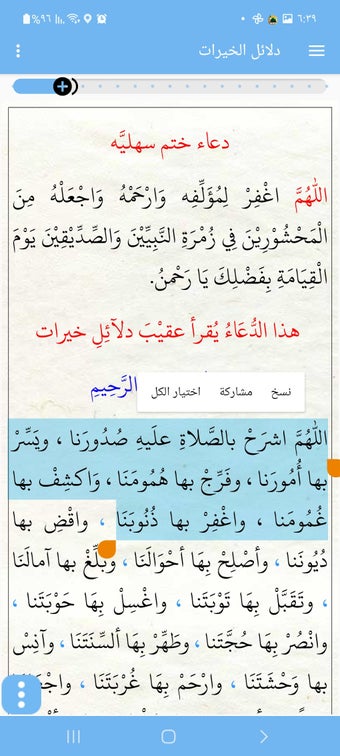 ٦:٣٩
%٩٦
دلائل الخيرات
دعاء ختم سهليَّه
اللهُمَّ اغْفِرْ لِمُؤَلِّفِه وَارْحَمْهُ وَاجْعَلْهُ مِنَ
الْمَحْشُوْرِيْنَ فِي زُمْرَةِ النَّبِيِّيْنَ وَالصِّدِّيْقِيْنَ يَوْمَ
الْقِيَامَةِ بِفَضْلِكَ يَا رَحْمٰنُ.
هذا الدُّعَاءُ يُقرأ عقيْبَ دلآئِلِ خيرات
نسخ مشاركة اختيار الكل
الرَّحِيمِ
اللهُمَّ اشرَحْ بالصَّلاةِ علَيهِ صُدُورَنا ، ويَسِّرْ
بها أُمُورَنا ، وفَرِّجْ بها هُمُومَنَا ، وَاكشِفْ بها
غُمُومَنا ، واغْفِرْ بها ذُنُوبَنَا ، واقْضِ بها
دُيُونَنا ، وأصْلِحْ بِهَا أحْوَالَنَا ، وبَلِّغْ بها آمالَنَا
، وتَقَبَّلْ بِهَا تَوْبَتَنا ، واغْسِلْ بِهَا حَوْبَتَنا ،
وانْصُرْ بِهَا حُجَّتَنا ، وطَهِّرْ بِهَا ألسِنَتَنَا ، وآنِسْ
بها وَحْشَتَنَا ، وارْحَمْ بِهَا غُرْبَتَنَا ،